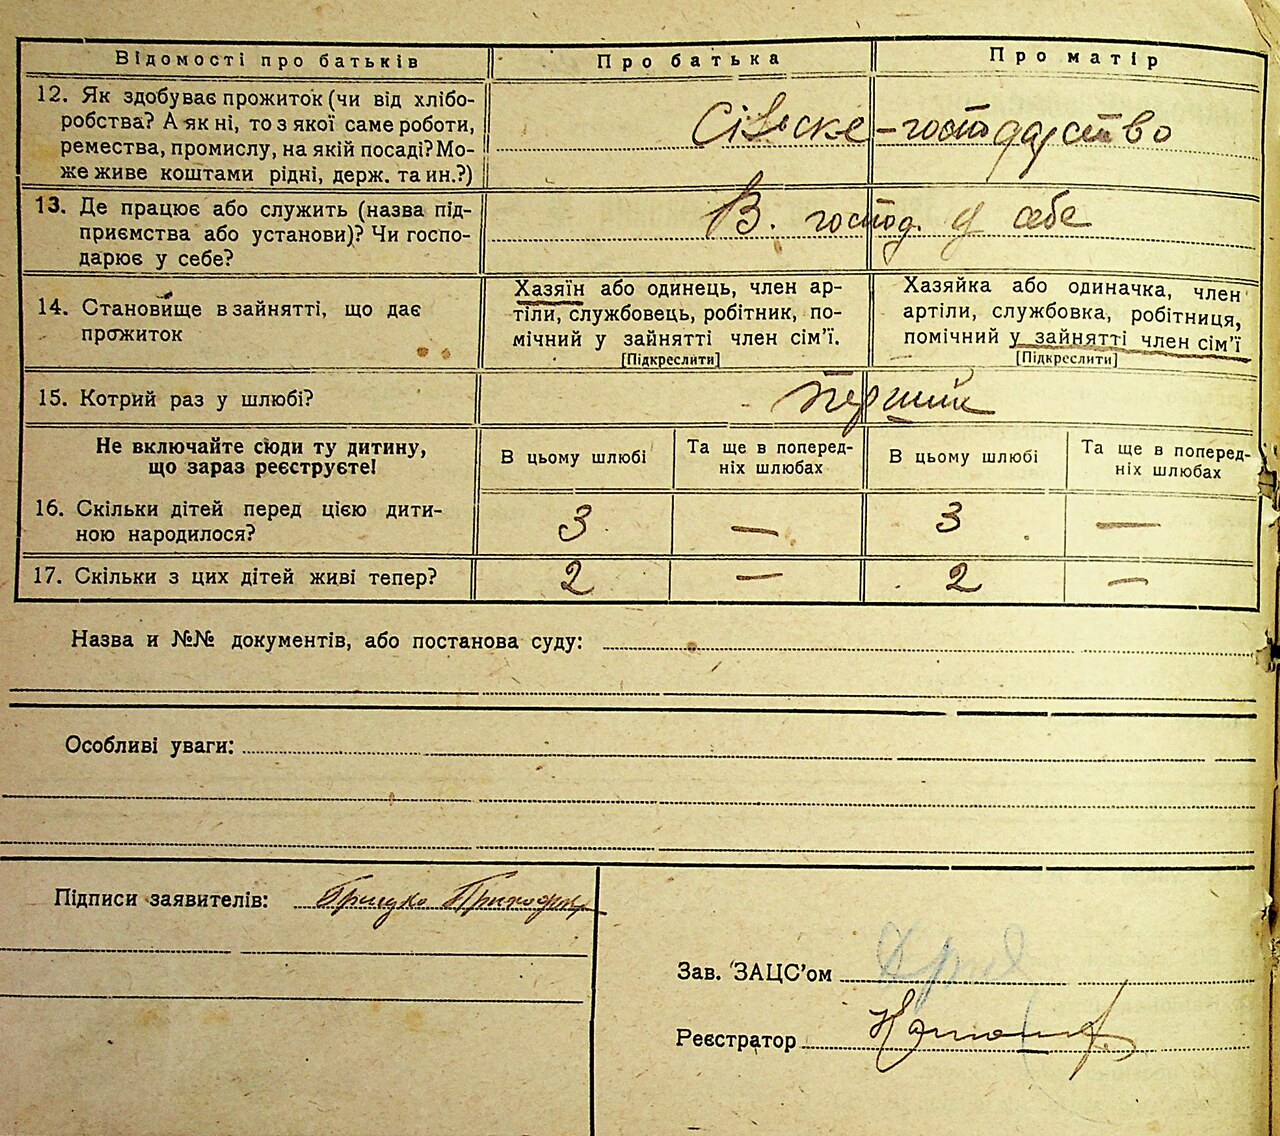 Відомості про батьків Про батька Про матір
12. Як здобуває прожиток (чи від хлібо-
робства? А як ні, то з якої саме роботи,
ремества, промислу, на якій посаді? Мо-
же живе коштами рідні, держ. та ин.?)
Сільске-господарство
13. Де працює або служить (назва під-
приємства або установи)? Чи госпо-
дарює у себе?
В. господ. у себе
14. Становище в зайнятті, що дає
прожиток
Хазяїн або одинець, член ар-
тіли, службовець, робітник, по-
мічний у зайнятті член сім'ї.
[Підкреслити]
Хазяйка або одиначка, член
артіли, службовка, робітниця,
помічний у зайнятті член сім'ї
[Підкреслити]
15. Котрий раз у шлюбі?
Не включайте сюди ту дитину,
що зараз реєструєте!
В цьому шлюбі
Та ще в поперед-
ніх шлюбах
В цьому шлюбі
Та ще в поперед-
ніх шлюбах
16. Скільки дітей перед цією дити-
ною народилося?
3 — 3 —
17. Скільки з цих дітей живі тепер? 2 — 2 —
Назва и №№ документів, або постанова суду:
Особливі уваги:
Підписи заявителів: Грицко
Зав. ЗАЦС'ом
Реєстратор